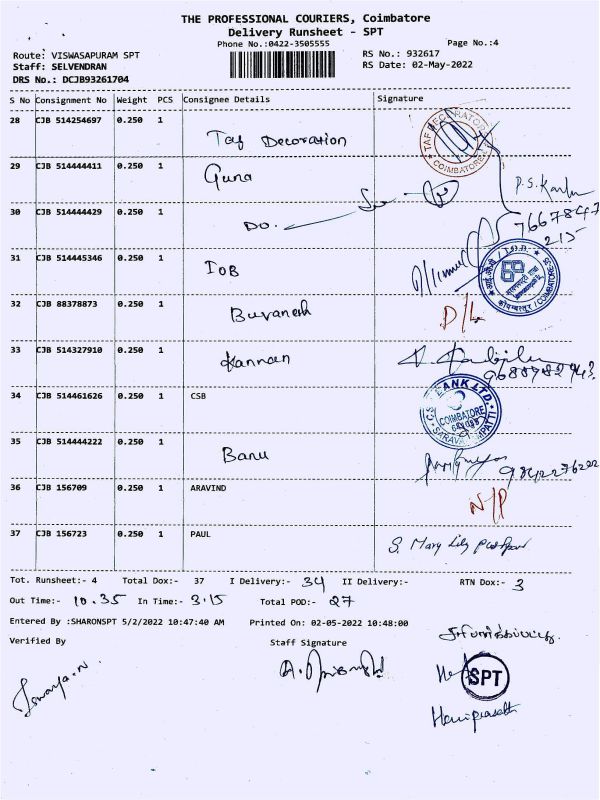 THE PROFESSIONAL COURIERS, Coimbatore
Delivery Runsheet - SPT
Phone No.:0422-3505555
Page No.:4
Route: VISWASAPURAM SPT
RS No.: 932617
Staff: SELVENDRAN
RS Date: 02-May-2022
DRS No.: DCJB93261704
S No Consignment No Weight PCS Consignee Details Signature
28 CJB 514254697 0.250 1 Taf Decoration
TAF DECORATORS
COIMBATORE
29 CJB 514444411 0.250 1 Guna
30 CJB 514444429 0.250 1 DO.
31 CJB 514445346 0.250 1 IOB
32 CJB 88378873 0.250 1 Buvanesh D/L
33 CJB 514327910 0.250 1 Kannan
34 CJB 514461626 0.250 1 CSB
BANK LTD.
COIMBATORE
35 CJB 514444222 0.250 1 Banu 9842276222
36 CJB 156709 0.250 1 ARAVIND N/P
37 CJB 156723 0.250 1 PAUL S. Mary Lily
Tot. Runsheet:- 4 Total Dox:- 37 I Delivery:- 34 II Delivery:- RTN Dox:- 3
Out Time:- 10.35 In Time:- 3.15 Total POD:- 27
Entered By :SHARONSPT 5/2/2022 10:47:40 AM Printed On: 02-05-2022 10:48:00
Verified By Staff Signature
SPT
Hariprasath